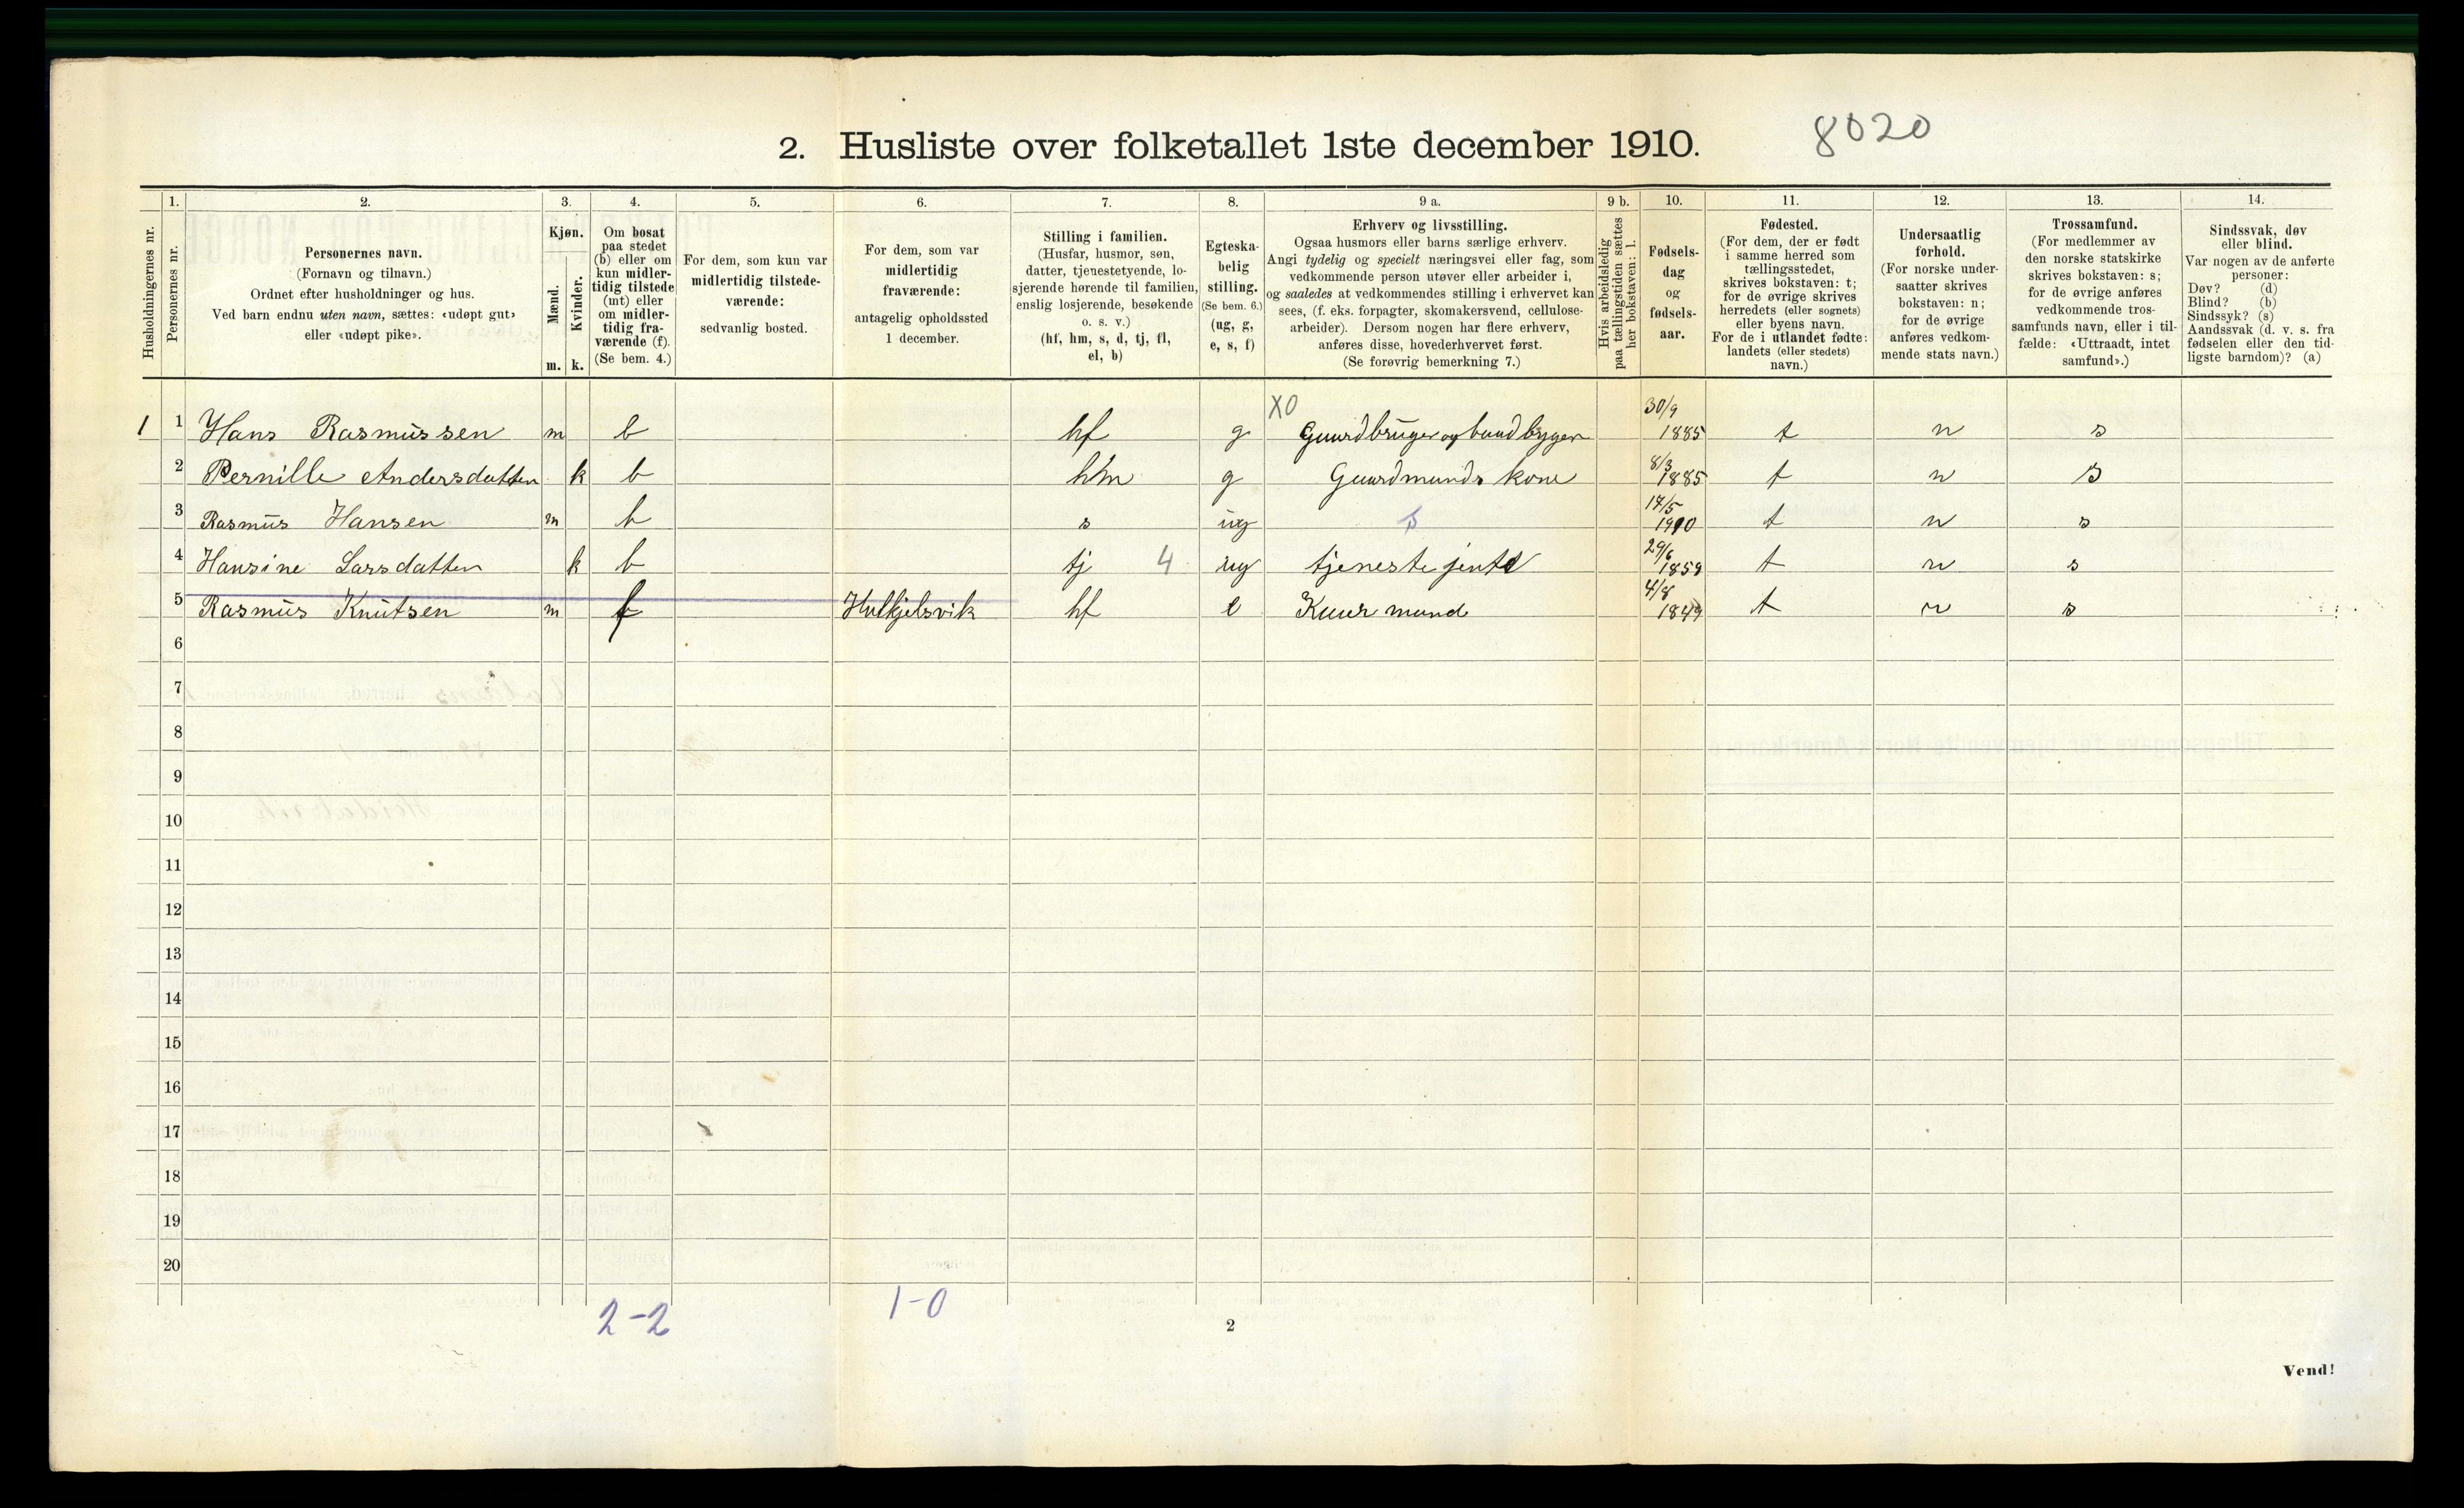 2. Husliste over folketallet 1ste december 1910.
8020
Husholdningernes nr.
1.
Personernes nr.
2.
Personernes navn.
(Fornavn og tilnavn.)
Ordnet efter husholdninger og hus.
Ved barn endnu uten navn, sættes: «udøpt gut»
eller «udøpt pike».
3.
Kjøn.
Mænd.
Kvinder.
m. k.
4.
Om bosat
paa stedet
(b) eller om
kun midler-
tidig tilstede
(mt) eller
om midler-
tidig fra-
værende (f).
(Se bem. 4.)
5.
For dem, som kun var
midlertidig tilstede-
værende:
sedvanlig bosted.
6.
For dem, som var
midlertidig
fraværende:
antagelig opholdssted
1 december.
7.
Stilling i familien.
(Husfar, husmor, søn,
datter, tjenestetyende, lo-
sjerende hørende til familien,
enslig losjerende, besøkende
o. s. v.)
(hf, hm, s, d, tj, fl,
el, b)
8.
Egteska-
belig
stilling.
(Se bem. 6.)
(ug, g,
e, s, f)
9 a.
Erhverv og livsstilling.
Ogsaa husmors eller barns særlige erhverv.
Angi tydelig og specielt næringsvei eller fag, som
vedkommende person utøver eller arbeider i,
og saaledes at vedkommendes stilling i erhvervet kan
sees, (f. eks. forpagter, skomakersvend, cellulose-
arbeider). Dersom nogen har flere erhverv,
anføres disse, hovederhvervet først.
(Se forøvrig bemerkning 7.)
9 b.
Hvis arbeidsledig
paa tællingstiden sættes
her bokstaven: l.
10.
Fødsels-
dag
og
fødsels-
aar.
11.
Fødested.
(For dem, der er født
i samme herred som
tællingsstedet,
skrives bokstaven: t;
for de øvrige skrives
herredets (eller sognets)
eller byens navn.
For de i utlandet fødte:
landets (eller stedets)
navn.)
12.
Undersaatlig
forhold.
(For norske under-
saatter skrives
bokstaven: n;
for de øvrige
anføres vedkom-
mende stats navn.)
13.
Trossamfund.
(For medlemmer av
den norske statskirke
skrives bokstaven: s;
for de øvrige anføres
vedkommende tros-
samfunds navn, eller i til-
fælde: «Uttraadt, intet
samfund».)
14.
Sindssvak, døv
eller blind.
Var nogen av de anførte
personer:
Døv? (d)
Blind? (b)
Sindssyk? (s)
Aandssvak (d. v. s. fra
fødselen eller den tid-
ligste barndom)? (a)
1 1 Hans Rasmussen m b hf g X0 Gaardbruger og baadbygger 30/9 1885 t n s
2 Pernille Andersdatter k b hm g Gaardmands kone 8/3 1885 t n s
3 Rasmus Hansen m b s ug s 17/5 1910 t n s
4 Hansine Larsdatter k b tj 4 ug tjeneste jente 29/6 1859 t n s
5 Rasmus Knutsen m f Hulkjelsvik hf e Kaarmand 4/8 1849 t n s
6
7
8
9
10
11
12
13
14
15
16
17
18
19
20
2-2
1-0
2
Vend!